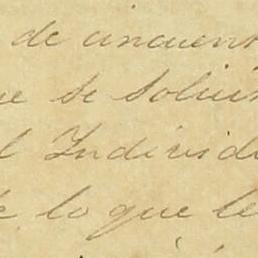 de cincuent
ue se solici
l Individ
de lo que le